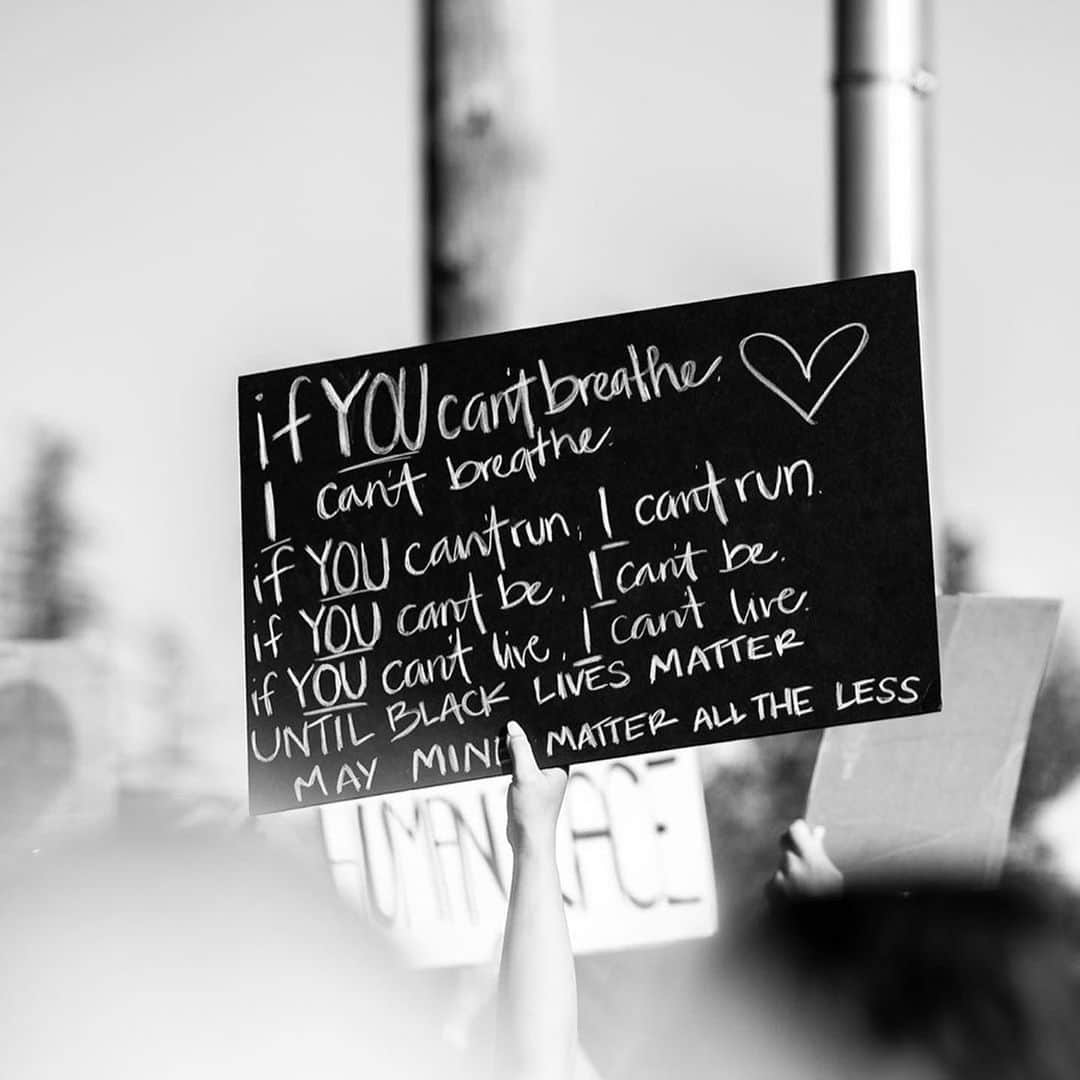 if YOU can't breathe.
I can't breathe.
if YOU can't run, I can't run.
if YOU can't be, I can't be.
if YOU can't live, I can't live.
UNTIL BLACK LIVES MATTER
MAY MIND MATTER ALL THE LESS
HUMAN RACE